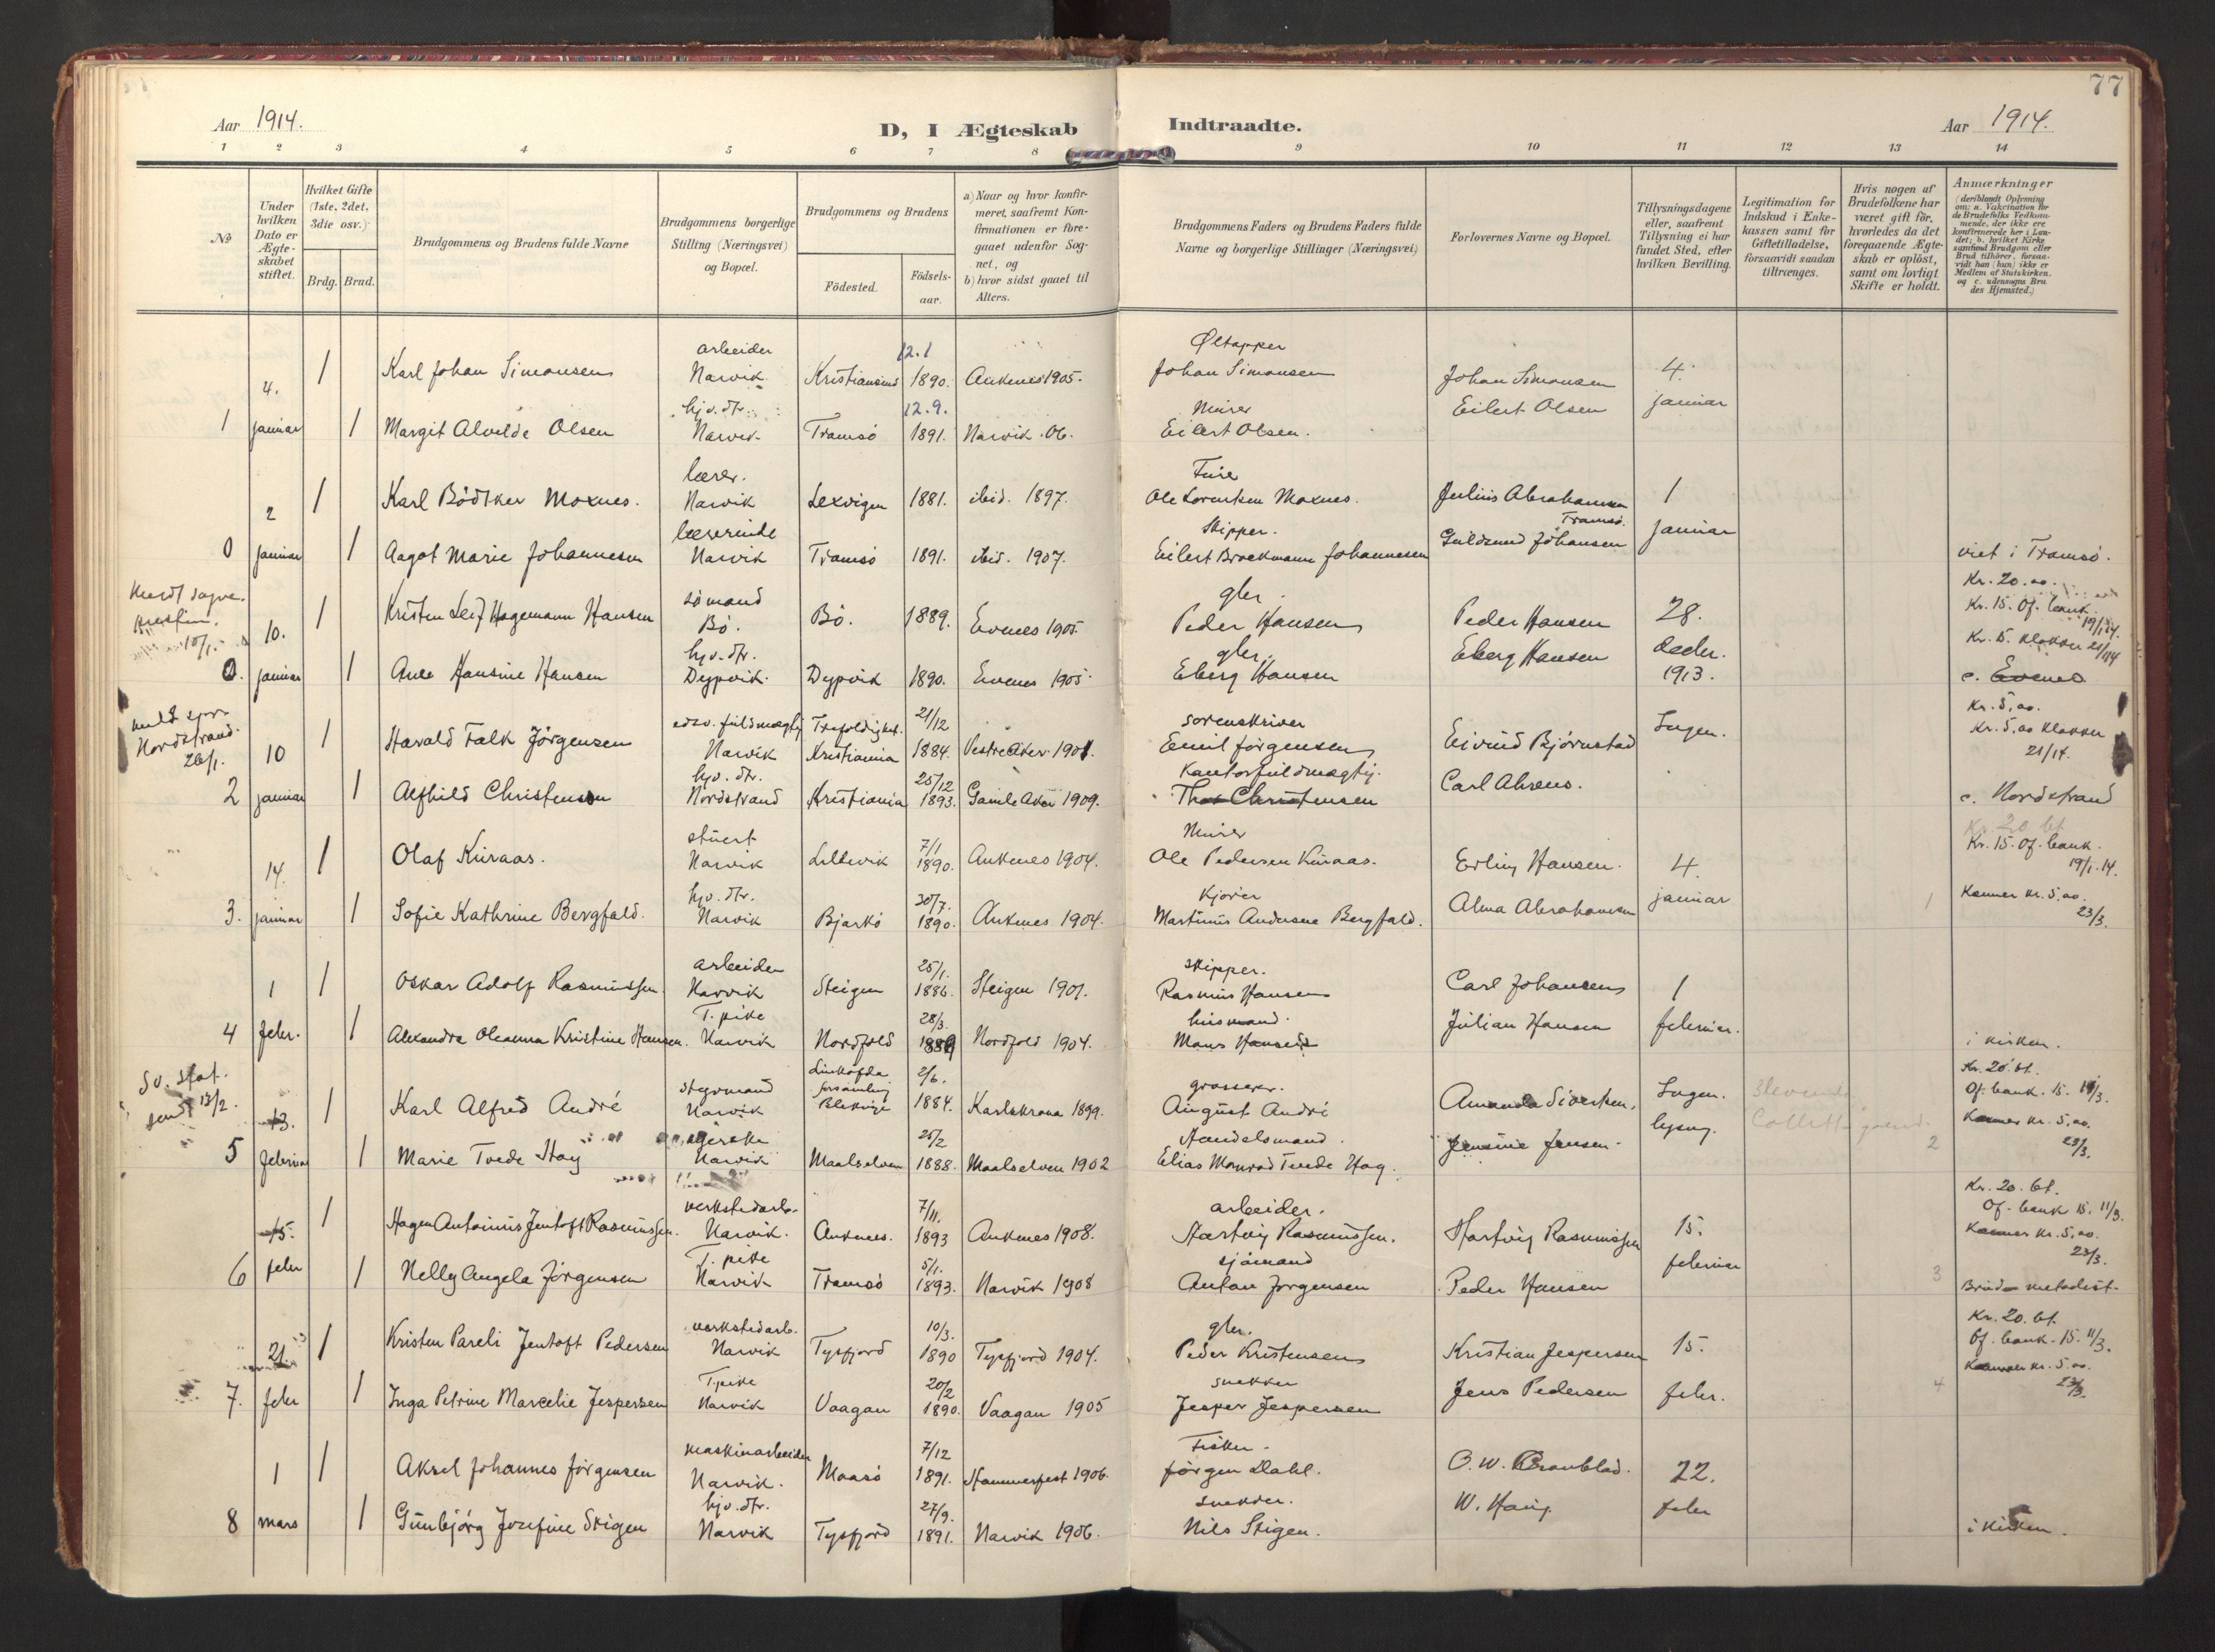 77
Aar 1914.
D, I Ægteskab Indtraadte.
Aar 1914.
1 2 3 4 5 6 7 8 9 10 11 12 13 14
№
Under hvilken Dato er Ægteskabet stiftet.
Hvilket Gifte (1ste, 2det, 3die osv.)
Brdg. Brud.
Brudgommens og Brudens fulde Navne
Brudgommens borgerlige Stilling (Næringsvei) og Bopæl.
Brudgommens og Brudens
Födested.
Födselsaar.
a) Naar og hvor konfirmeret, saafremt Konfirmationen er foregaaet udenfor Sognet, og
b) hvor sidst gaaet til Alters.
Brudgommens Faders og Brudens Faders fulde Navne og borgerlige Stillinger (Næringsvei)
Forlovernes Navne og Bopæl.
Tillysningsdagene eller, saafremt Tillysning ei har fundet Sted, efter hvilken Bevilling.
Legitimation for Indskud i Enkekassen samt for Giftetilladelse, forsaavidt saadan tiltrænges.
Hvis nogen af Brudefolkene har været gift för, hvorledes da det foregaaende Ægteskab er oplöst, samt om lovligt Skifte er holdt.
Anmærkninger
(deriblandt Oplysning om: a. Vakcination for de Brudefolks Vedkommende, der ikke ere konfirmerede her i Landet; b. hvilket Kirkesamfund Brudgom eller Brud tilhörer, forsaavidt han (hun) ikke er Medlem af Statskirken. og c. udensogns Brudes Hjemsted.)
arbeider 12.1 Øltapper
4. 1 Karl Johan Simonsen Narvik Kristiansund 1890. Ankenes 1905. Johan Simonsen Johan Simonsen 4.
hjv. dtr. 12.9. Murer Eilert Olsen januar
1 januar 1 Margit Alvilde Olsen Narvik Tromsö 1891. Narvik 06. Eilert Olsen.
lærer.
2 1 Karl Bödtker Moxnes. Narvik Lexvigen 1881. ibid. 1897. Ole Lorentsen Moxnes. Julius Abrahamsen 1
lærerinde Skipper. Tromsö. januar
0 januar 1 Aagot Marie Johannesen Narvik Tromsö 1891. ibid. 1907. Eilert Brockmann Johannesen Guldmund Johansen viet i Tromsö.
Kr. 20.oo.
sömand gbr. Kr. 15. Of. bank. 19/1.14.
10/1. 10. 1 Kristen Leif Hagemann Hansen Bö. Bö. 1889. Evenes 1905. Peder Hansen Peder Hansen 28.
Kr. 5. klokker 21/1 14
hjv. dtr. gbr. decbr.
0. januar 1 Ane Hansine Hansen Dypvik. Dypvik 1890. Evenes 1905. Eberg Hansen Eberg Hansen 1913. c. Evenes
Nordstrand. 26/1.
edsv. fuldmægtig Trefoldighet. 21/12 sorenskriver Kr. 5,oo.
10 1 Harald Falk Jörgensen Narvik Kristiania 1884. Vestre Aker 1901. Emil Jörgensen Eivind Björnstad Ingen. Kr. 5,oo klokker 21/14.
hjv. dtr. 25/12 Kontorfuldmægtig.
2 januar 1 Alfhild Christensen Nordstrand Kristiania 1893. Gamle Aker 1909. Thor Christensen Carl Ahrens. c. Nordstrand
Kr. 20 bt.
stuert 7/1 Murer Kr. 15. Of. bank. 19/1.14.
14. 1 Olaf Kuraas. Narvik 1890. Ankenes 1904. Ole Pedersen Kuraas. Erling Hansen. 4.
hjv. dtr. 30/7. Kjörer januar Kr. 5,oo. 23/3.
3. januar 1 Sofie Kathrine Bergfald. Narvik Bjarkö 1890. Ankenes 1904. Martinus Andersen Bergfald. Alma Abrahamsen 1
arbeider 25/1. skipper.
1 1 Oskar Adolf Rasmussen Narvik Steigen 1886. Steigen 1901. Rasmus Hansen Carl Johansen 1
T. pike 28/3. husmand.
4 febr. 1 Alexandra Oleanna Kristine Hansen. Narvik Nordfold 1889 Nordfold 1904. Mons Hansen Julian Hansen februar. i kirken.
Sv. stat. sendt 13/2.
styrmand 2/6. grosserer. Kr. 20 bt.
13. 1 Karl Alfred André Narvik Blekinge 1884. Karlskrona 1899. August André Amanda Sivertsen. Ingen Of. bank. 15. 11/3.
25/2 Handelsmand. lysng. Kr. 5,oo. 23/3.
5 februar 1 Marie Tvede Hay Narvik Maalselven 1888. Maalselven 1902 Elias Monrad Tvede Hag. Jensine Jensen. 2
verkstedarb. 7/11. arbeider. Kr. 20. bt.
15. 1 Hagen Antonius Jentoft Rasmussen. Narvik. Ankenes. 1893 Ankenes 1908. Hartvig Rasmussen. Hartvig Rasmussen 15. Of. bank 15. 11/3.
T. pike 5/1. sjömand februar Kr. 5,oo. 23/3.
6 febr 1 Nelly Angela Jörgensen Narvik Tromsö 1893. Narvik 1908 Anton Jörgensen Peder Hansen 3 Brud metodist.
verkstedarb. 10/3. gbr. Kr. 20. bt.
21. 1 Kristen Pareli Jentoft Pedersen Narvik Tysfjord 1890 Tysfjord 1904. Peder Kristensen Kristian Jespersen 15. Of. bank. 15. 11/3.
T.pike 20/2 snekker Kr. 5.oo. 23/3.
7. febr 1 Inga Petrine Marcelie Jespersen Narvik Vaagan 1890. Vaagan 1905 Jesper Jespersen Jens Pedersen febr. 4
maskinarbeider 7/12 Fisker.
1 1 Aksel Johannes Jörgensen Narvik. Maasö 1891. Hammerfest 1906. Jörgen Dahl. O. W. Cronblad. 22.
hjv. dtr. 27/9. snekker.
8 mars 1 Gunbjörg Josefine Stigen Narvik Tysfjord 1891. Narvik 1906. Nils Stigen. W. Haug. febr i kirken.